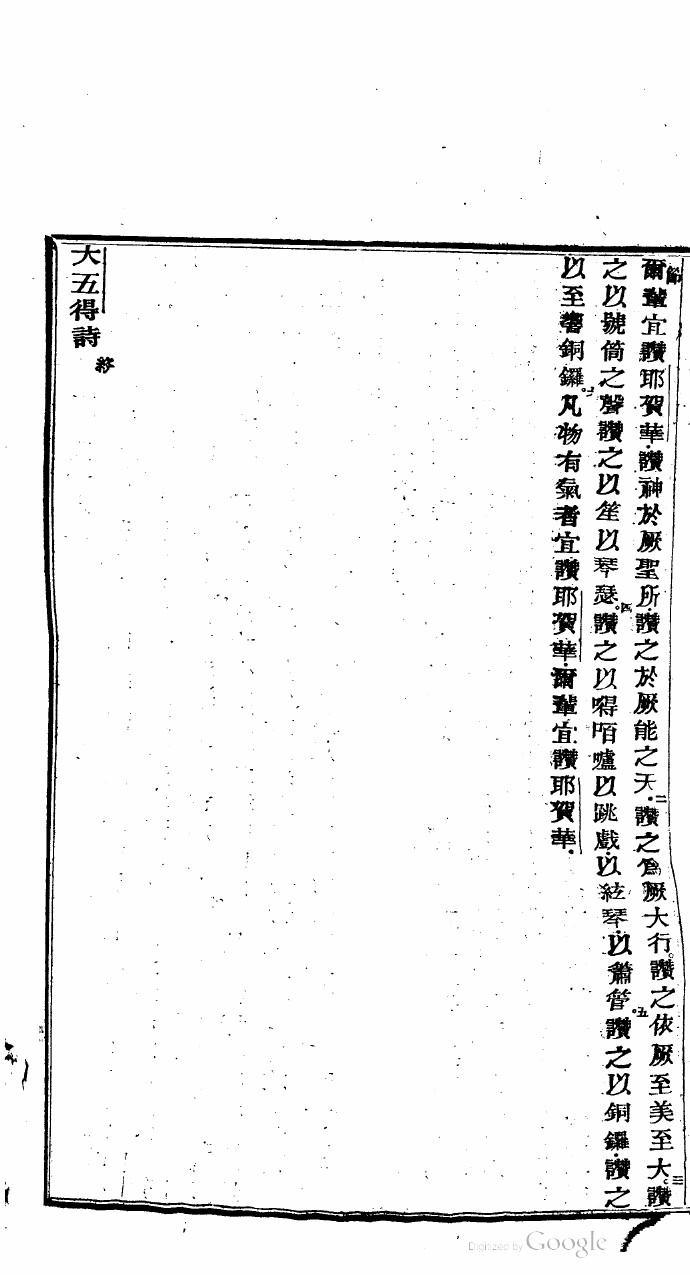 節爾輩宜讚耶賀華.讚神於厥聖所.讚之於厥能之天.二讚之爲厥大行。讚之依厥至美至大。三讚
之以號筒之聲讚之以笙以琴瑟。四讚之以嘚陌嚧以跳戲.以絃琴.以簫管。五讚之以銅鑼.讚之
以至響銅鑼。六凡物有氣者宜讚耶賀華.爾輩宜讚耶賀華.
大五得詩 終
Digitized by Google